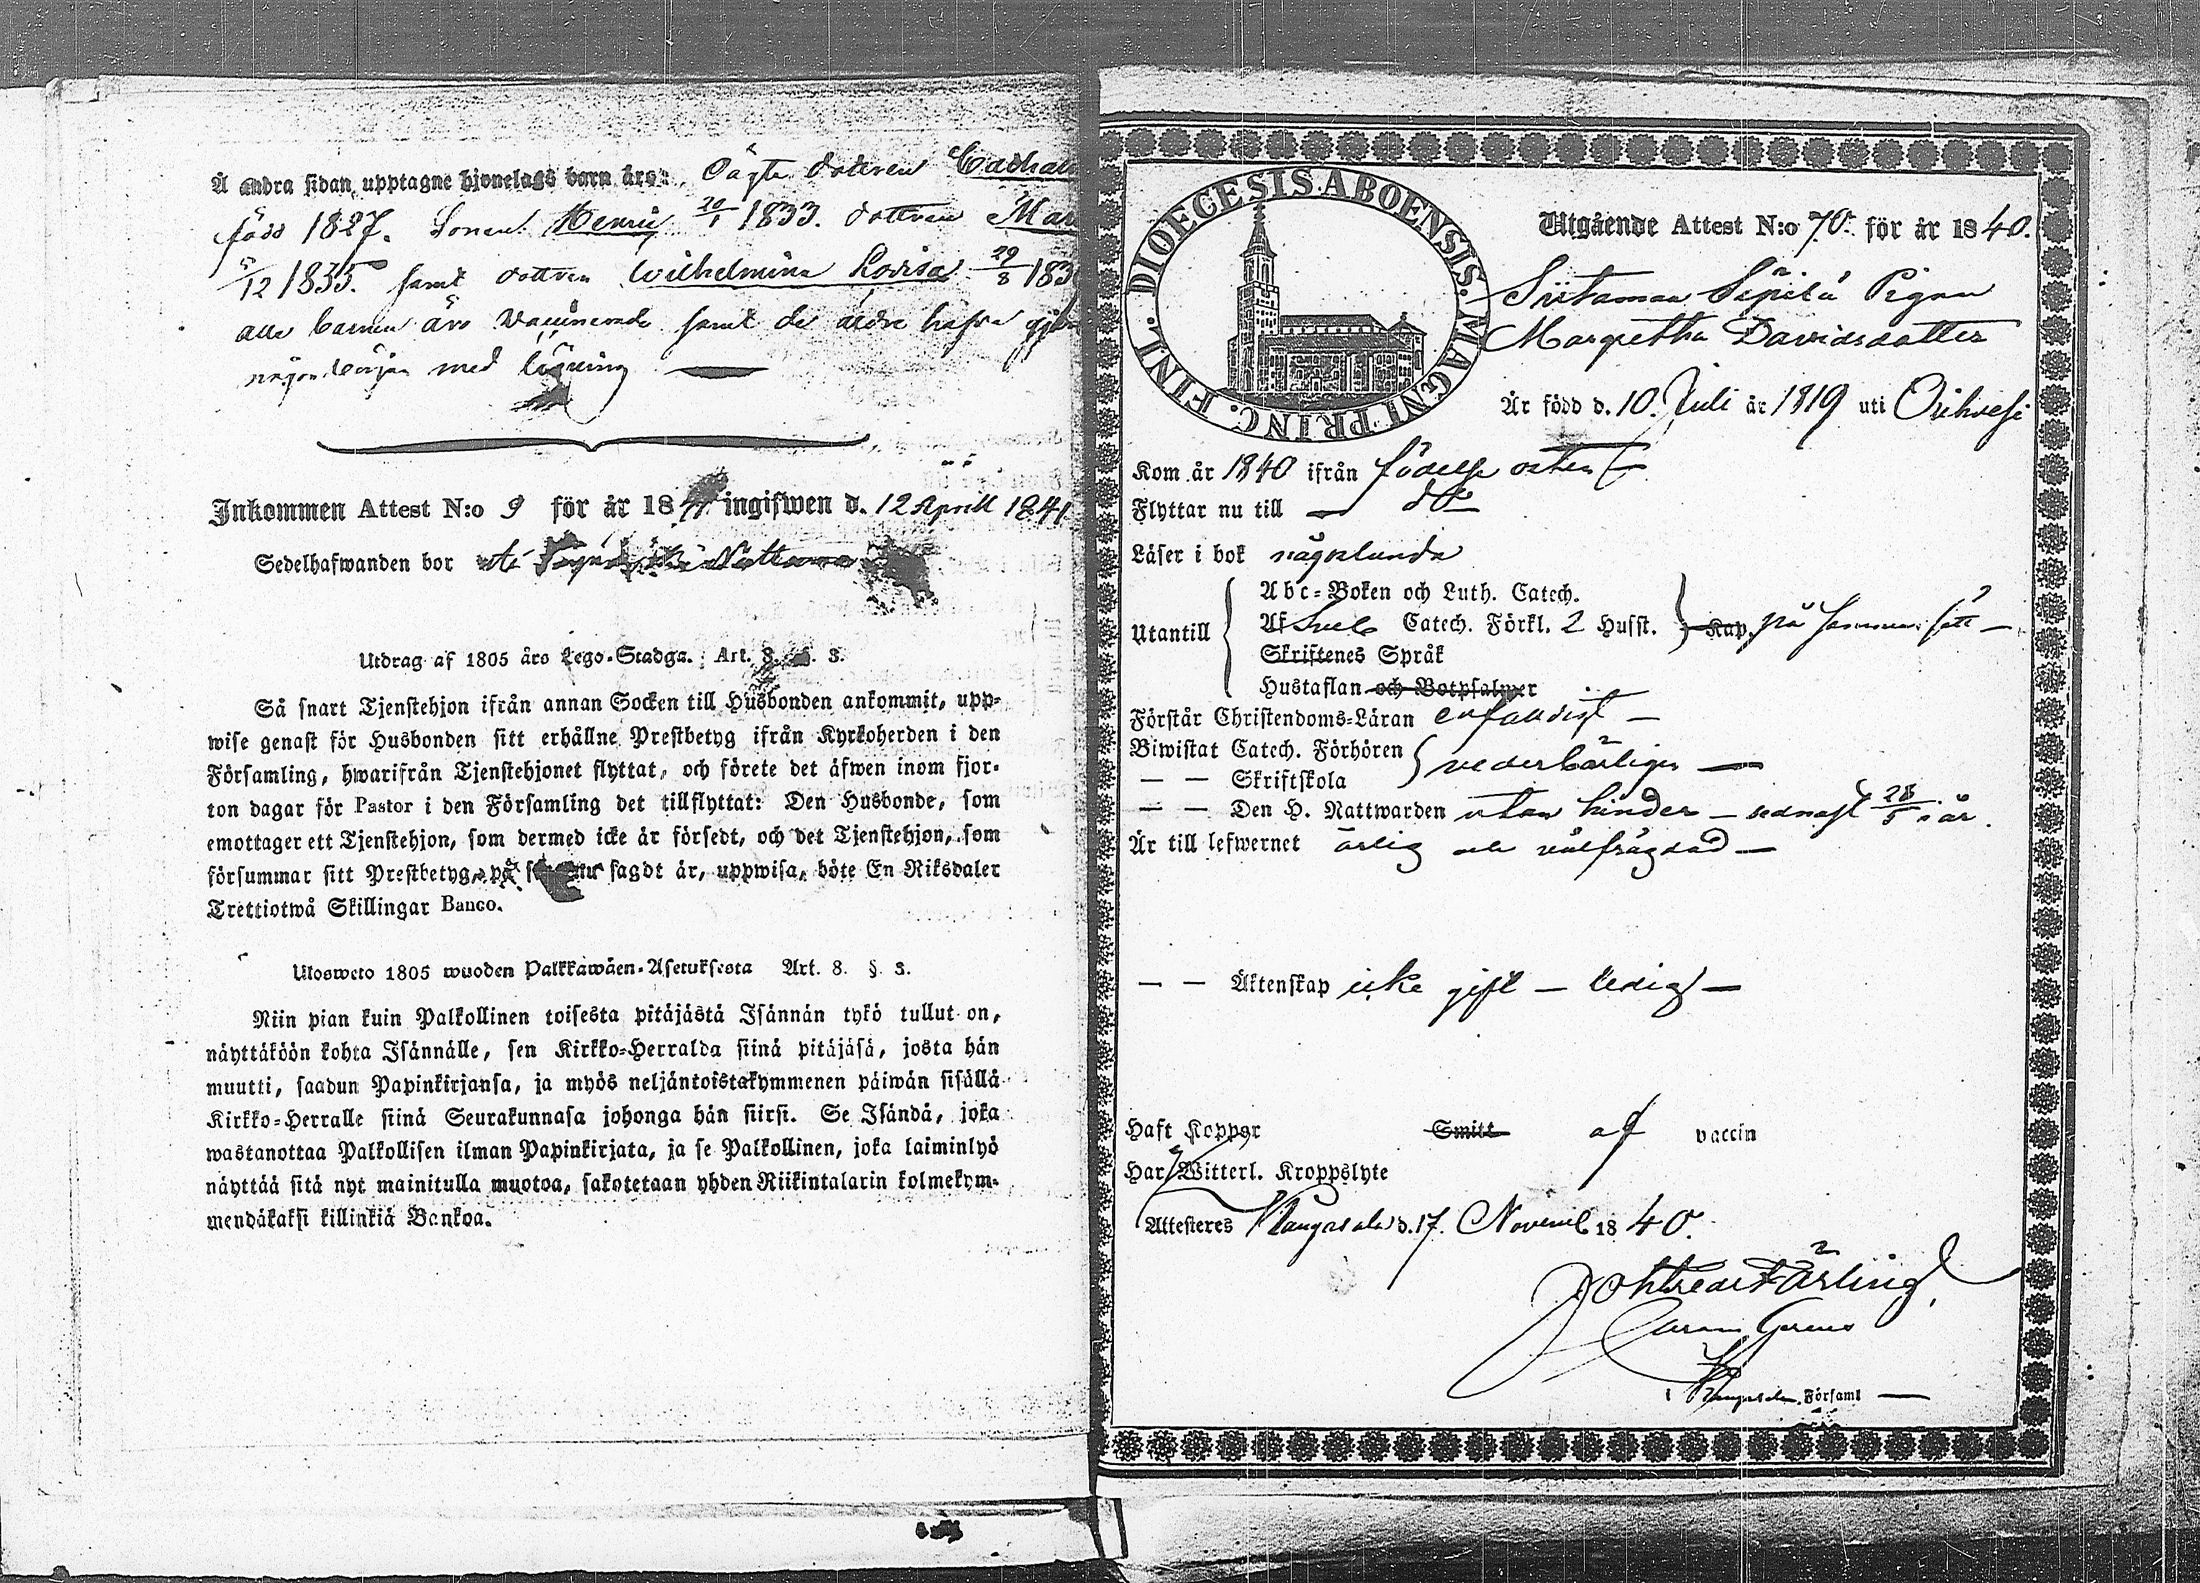 Å andra sidan upptagne hjonelags barn äro: Oägta dottren
född 1827. Sonen Henric 20/1 1833. dottren
5/12 1835. samt dottren Wilhelmina Lovisa 29/8
alla barnen äro vaccinerade samt de äldre hafva
med läsning
Inkommen Attest N:o 9 för år 18 ingifwen d. 12 Aprill 1841
Sedelhafwanden bor
Utdrag af 1805 års Lego-Stadga. Art. 8. §. 3.
Så snart Tjenstehjon ifrån annan Socken till Husbonden ankommit, upp-
wise genast för Husbonden sitt erhållne Prestbetyg ifrån Kyrkoherden i den
Församling, hwarifrån Tjenstehjonet flyttat, och förete det äfwen inom fjor-
ton dagar för Pastor i den Församling det tillflyttat: Den Husbonde, som
emottager ett Tjenstehjon, som dermed icke är försedt, och det Tjenstehjon, som
försummar sitt Prestbetyg, på sagdt är, uppwisa, böte En Riksdaler
Trettiotwå Skillingar Banco.
Ulosweto 1805 wuoden Palkkawäen-Asetuksesta Art. 8. §. 3.
Niin pian kuin Palkollinen toisesta pitäjästä Isännän tykö tullut on,
näyttäköön kohta Isännälle, sen Kirkko-Herralda siinä pitäjäsä, josta hän
muutti, saadun Papinkirjansa, ja myös neljäntoistakymmenen päiwän sisällä
Kirkko-Herralle siinä Seurakunnasa johonga hän siirsi. Se Isändä, joka
wastanottaa Palkollisen ilman Papinkirjata, ja se Palkollinen, joka laiminlyö
näyttää sitä nyt mainitulla muotoa, sakotetaan yhden Riikintalarin kolmekym-
mendäkaksi killinkiä Bankoa.
DIOECESIS ABOENSIS. MAGNI PRINC. FINL.
Utgående Attest N:o 70. för år 1840.
Siitamaa Seppilä Pigan
Margretha Davidsdotter
Är född d. 10. Juli år 1819 uti Orihvesi
Kom år 1840 ifrån födelse orten
Flyttar nu till — do
Läser i bok någorlunda
Utantill
Abc-Boken och Luth. Catech.
Af Sveb Catech. Förkl. 2 Husst. Kap. på samma sätt —
Skriftenes Språk
Hustaflan och Botpsalmer
Förstår Christendoms-Läran enfaldigt —
Biwistat Catech. Förhören
— — Skriftskola
vederbörligen —
— — Den H. Nattwarden utan hinder — sednast 28/5 i år.
Är till lefwernet ärlig och välfrägdad —
— — Äktenskap icke gift — ledig —
Haft Koppor Smitt af vaccin
Har Witterl. Kroppslyte
Attesteres Kangasala d. 17. Novemb 1840.
i Kangasala Församl —